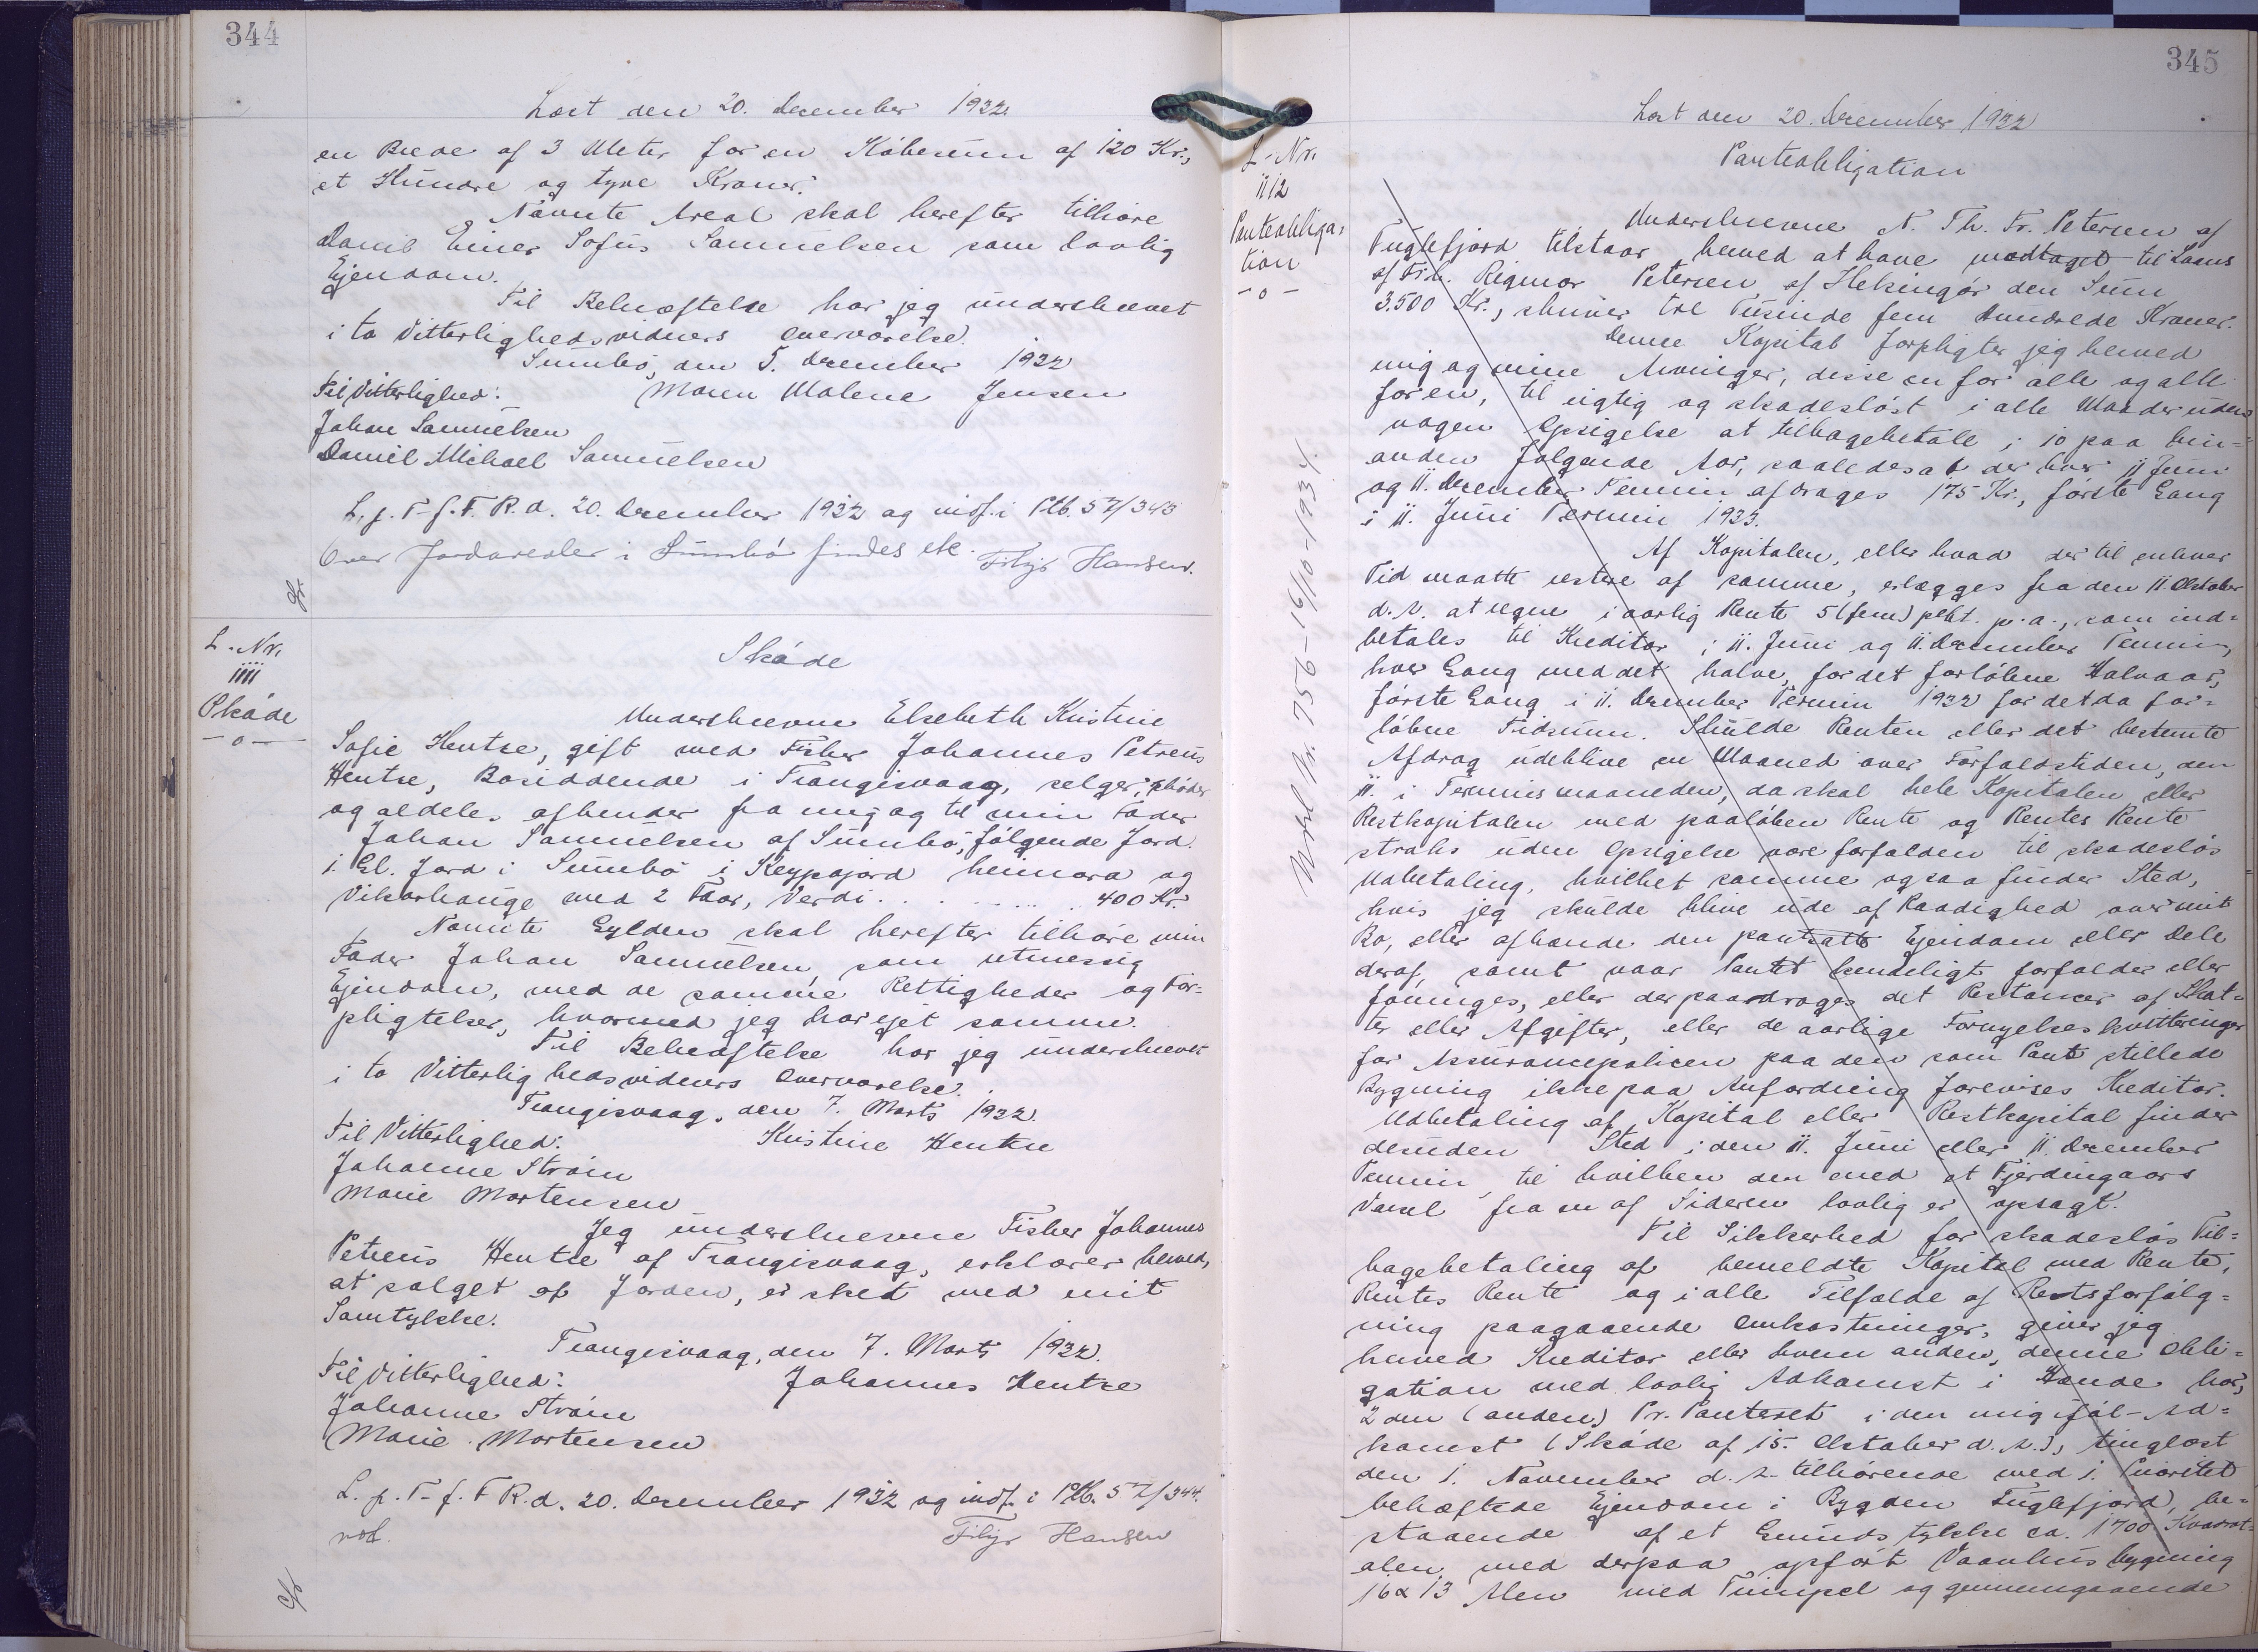 344
Læst den 20. December 1932
en Brede af 3 Meter for en Købesum af 120 Kr.,
et Hundre og tyve Kroner.
Nævnte Areal skal herefter tilhøre
Daniel Einer Sofus Samuelsen som lovlig
Ejendom.
Til Bekræftelse har jeg underskrevet
i to Vitterlighedsvidners overværelse.
Sumbø, den 5. December 1932
Til Vitterlighed: Maren Malene Jensen
Johan Samuelsen
Daniel Michael Samuelsen
L. p. T. f. F. R. d. 20. December 1932 og indf. i Ptb. 57/343
Over Jordarealer i Sumbø findes ek.
Filip Hansen.
L. Nr.
1111
Skøde
-o-
Skøde
Underskrevne Elsebeth Kristine
Sofie Hentze, gift med Fisker Johannes Petreus
Hentze, Bosiddende i Trangisvaag, selger, skøder
og aldeles afhender fra mig og til min Fader
Johan Samuelsen af Sumbø, følgende Jord.
1. Gl. Jord i Sumbø i Keypajørd heimara og
Vikarhauge med 2 Faar, Verdi . . . . . . 400 Kr.
Nævnte Gylden skal herefter tilhøre min
Fader Johan Samuelsen, som retmessig
Ejendom, med de samme Rettigheder og For=
pligtelser, hvormed jeg har ejet samme.
Til Bekræftelse har jeg underskrevet
i to Vitterlighedsvidners Overværelse.
Trangisvaag, den 7. Marts 1932.
Til Vitterlighed: Kristine Hentze
Johanne Strøm
Marie Mortensen
Jeg underskrevne Fisker Johannes
Petreus Hentze af Trangisvaag, erklærer herved,
at salget af Jorden, er sket med mit
Samtykke.
Trangisvaag, den 7. Marts 1932.
Til Vitterlighed: Johannes Hentze
Johanne Strøm
Marie Mortensen
L. p. T. f. F R. d. 20. December 1932 og indf. i Ptb. 57/344.
Filip Hansen
345
Læst den 20. December 1932
L. Nr.
1112
Panteobliga=
tion
-o-
Panteobligation
Underskrevne N. Th. Fr. Petersen af
Fuglefjord tilstaar herved at have modtaget til Laans
af Frk. Rigmor Petersen af Helsingør den Sum
3.500 Kr., skriver tre Tusinde fem Hundrede Kroner.
Denne Kapital forpligter jeg herved
mig og mine Arvinger, disse en for alle og alle
for en, til rigtig og skadesløst i alle Maader uden
nogen Opsigelse at tilbagebetale i 10 paa hin=
anden følgende Aar, saaledes at der hver 11 Juni
og 11. December Termin afdrages 175 Kr., første Gang
i 11. Juni Termin 1933.
Af Kapitalen, eller hvad der til enhver
Tid maatte restere af samme, erlægges fra den 11. Oktober
d. A. at regne i aarlig Rente 5 (fem) pCt. p. a., som ind=
betales til Kreditor i 11. Juni og 11. December Termin,
hver Gang med det halve, for det forløbne Halvaar,
første Gang i 11. December Termin 1932 for det da for=
løbne Tidsrum. Skulde Renten eller det bestemte
Afdrag udeblive en Maaned over Forfaldstiden, den
11. i Terminsmaaneden, da skal hele Kapitalen eller
Restkapitalen med paaløben Rente og Rentes Rente
straks uden Opsigelse være forfalden til skadesløs
Udbetaling, hvilket samme ogsaa finder Sted,
hvis jeg skulde blive ude af Raadighed over mit
Bo, eller afhænde den pantsatte Ejendom eller Dele
deraf, samt naar Pantet kendeligt forfalder eller
forringes, eller der paadrages det Restancer af Skat=
ter eller Afgifter, eller de aarlige Fornyelseskvitteringer
for Assurancepolicen paa den som Pant stillede
Bygning ikke paa Anfordring forevises Kreditor.
Udbetaling af Kapital eller Restkapital finder
desuden Sted i den 11. Juni eller 11. December
Termin, til hvilken den med et Fjerdingaars
Varsel fra en af Siderne lovlig er opsagt.
Til Sikkerhed for skadesløs Til=
bagebetaling af bemeldte Kapital med Rente,
Rentes Rente og i alle Tilfælde af Retsforfølg=
ning paagaaende Omkostninger, giver jeg
herved Kreditor eller hvem anden, denne Obli=
gation med lovlig Adkomst i Hænde har,
2den (anden) Pr. Panteret i den mig iføl- Ad=
komst (Skøde af 15. Oktober d. A.), tinglæst
den 1. November d. A. tilhørende med 1. Prioritet
behæftede Ejendom i Bygden Fuglefjord, be=
staaende af et Grundstykke ca. 1700 Kvadrat=
alen, med derpaa opført Vaanhusbygning
16 x 13 Alen med og gennemgaaende